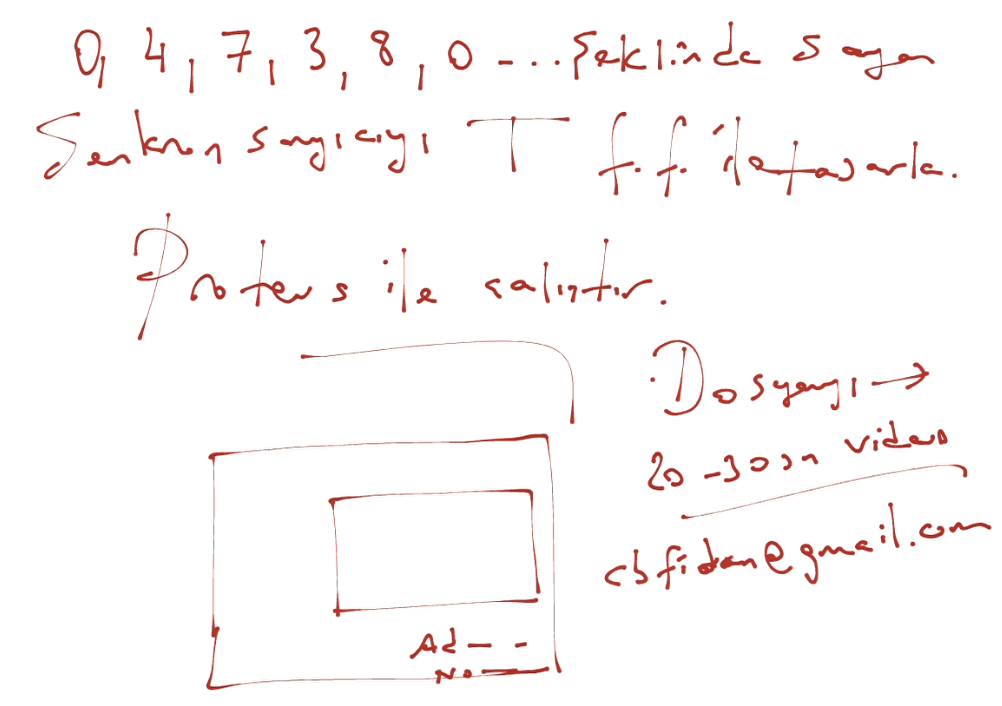 0, 4, 7, 3, 8, 0 -... Şeklinde sayan
Senkron sayıcıyı T f.f. ile tasarla.
Proteus ile çalıştır.
Dosyayı →
20 -30 sn video
cbfidan@gmail.com
Ad - -
No